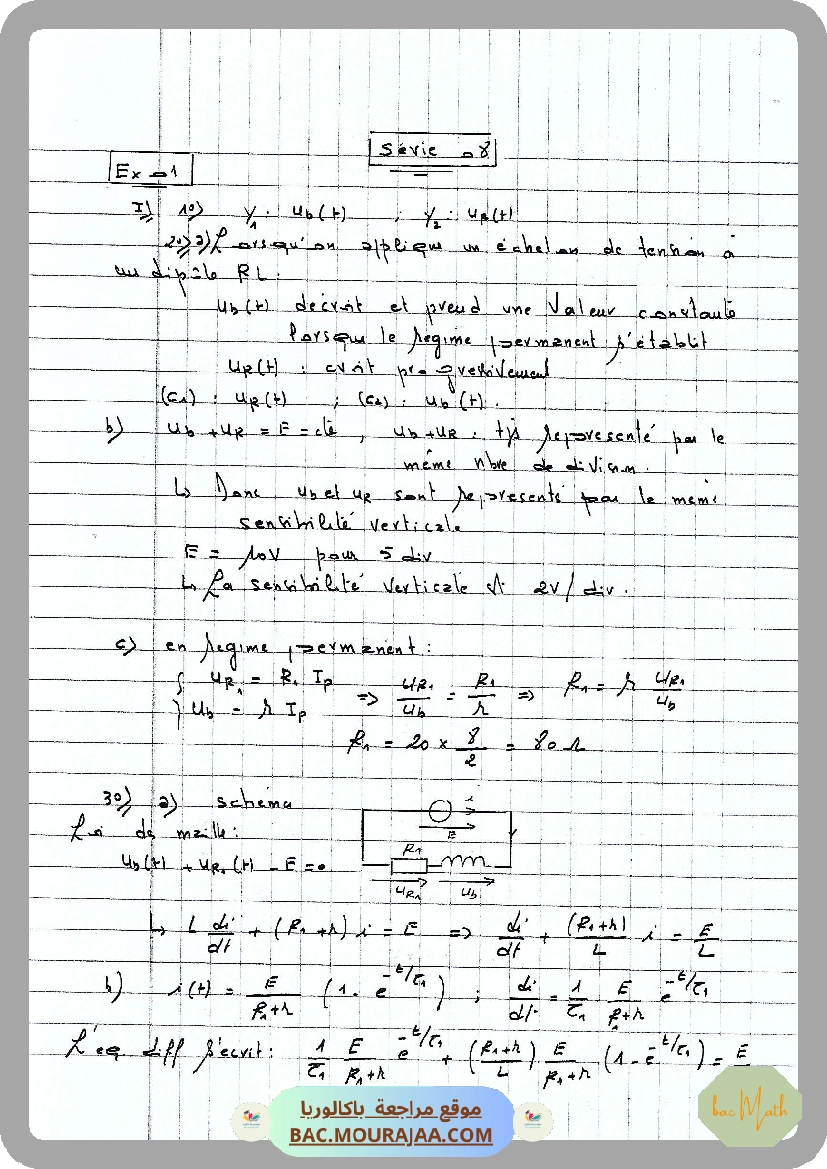 Série n° 8
Ex n° 1
I) 1°) Y₁ : u_b(t) ; Y₂ : u_R(t)
2°) a) Lorsqu'on applique un échelon de tension à
un dipôle RL :
u_b(t) décroit et prend une valeur constante
lorsque le régime permanent s'établit
u_R(t) : croit progressivement
(C₁) : u_R(t) ; (C₂) : u_b(t).
b) u_b + u_R = E = cte , u_b + u_R : tjs représenté par le
même nbre de division.
↳ Donc u_b et u_R sont représentés par la même
sensibilité verticale
E = 10V pour 5 div
↳ La sensibilité verticale est 2V/div.
c) en régime permanent :
{ u_R₁ = R₁ I_p
u_b = r I_p => u_R₁/u_b = R₁/r => R₁ = r u_R₁/u_b
R₁ = 20 × 8/2 = 80 Ω
3°) a) schéma
i
E
Loi des mailles :
R₁
u_b(t) + u_R₁(t) - E = 0
u_R₁ u_b
↳ L di/dt + (R₁ + r) i = E => di/dt + (R₁+r)/L i = E/L
b) i(t) = E/(R₁+r) (1 - e^(-t/τ₁)) ; di/dt = 1/τ₁ E/(R₁+r) e^(-t/τ₁)
L'eq diff s'écrit : 1/τ₁ E/(R₁+r) e^(-t/τ₁) + ((R₁+r)/L) E/(R₁+r) (1 - e^(-t/τ₁)) = E
موقع مراجعة باكالوريا
BAC.MOURAJAA.COM
bacMath